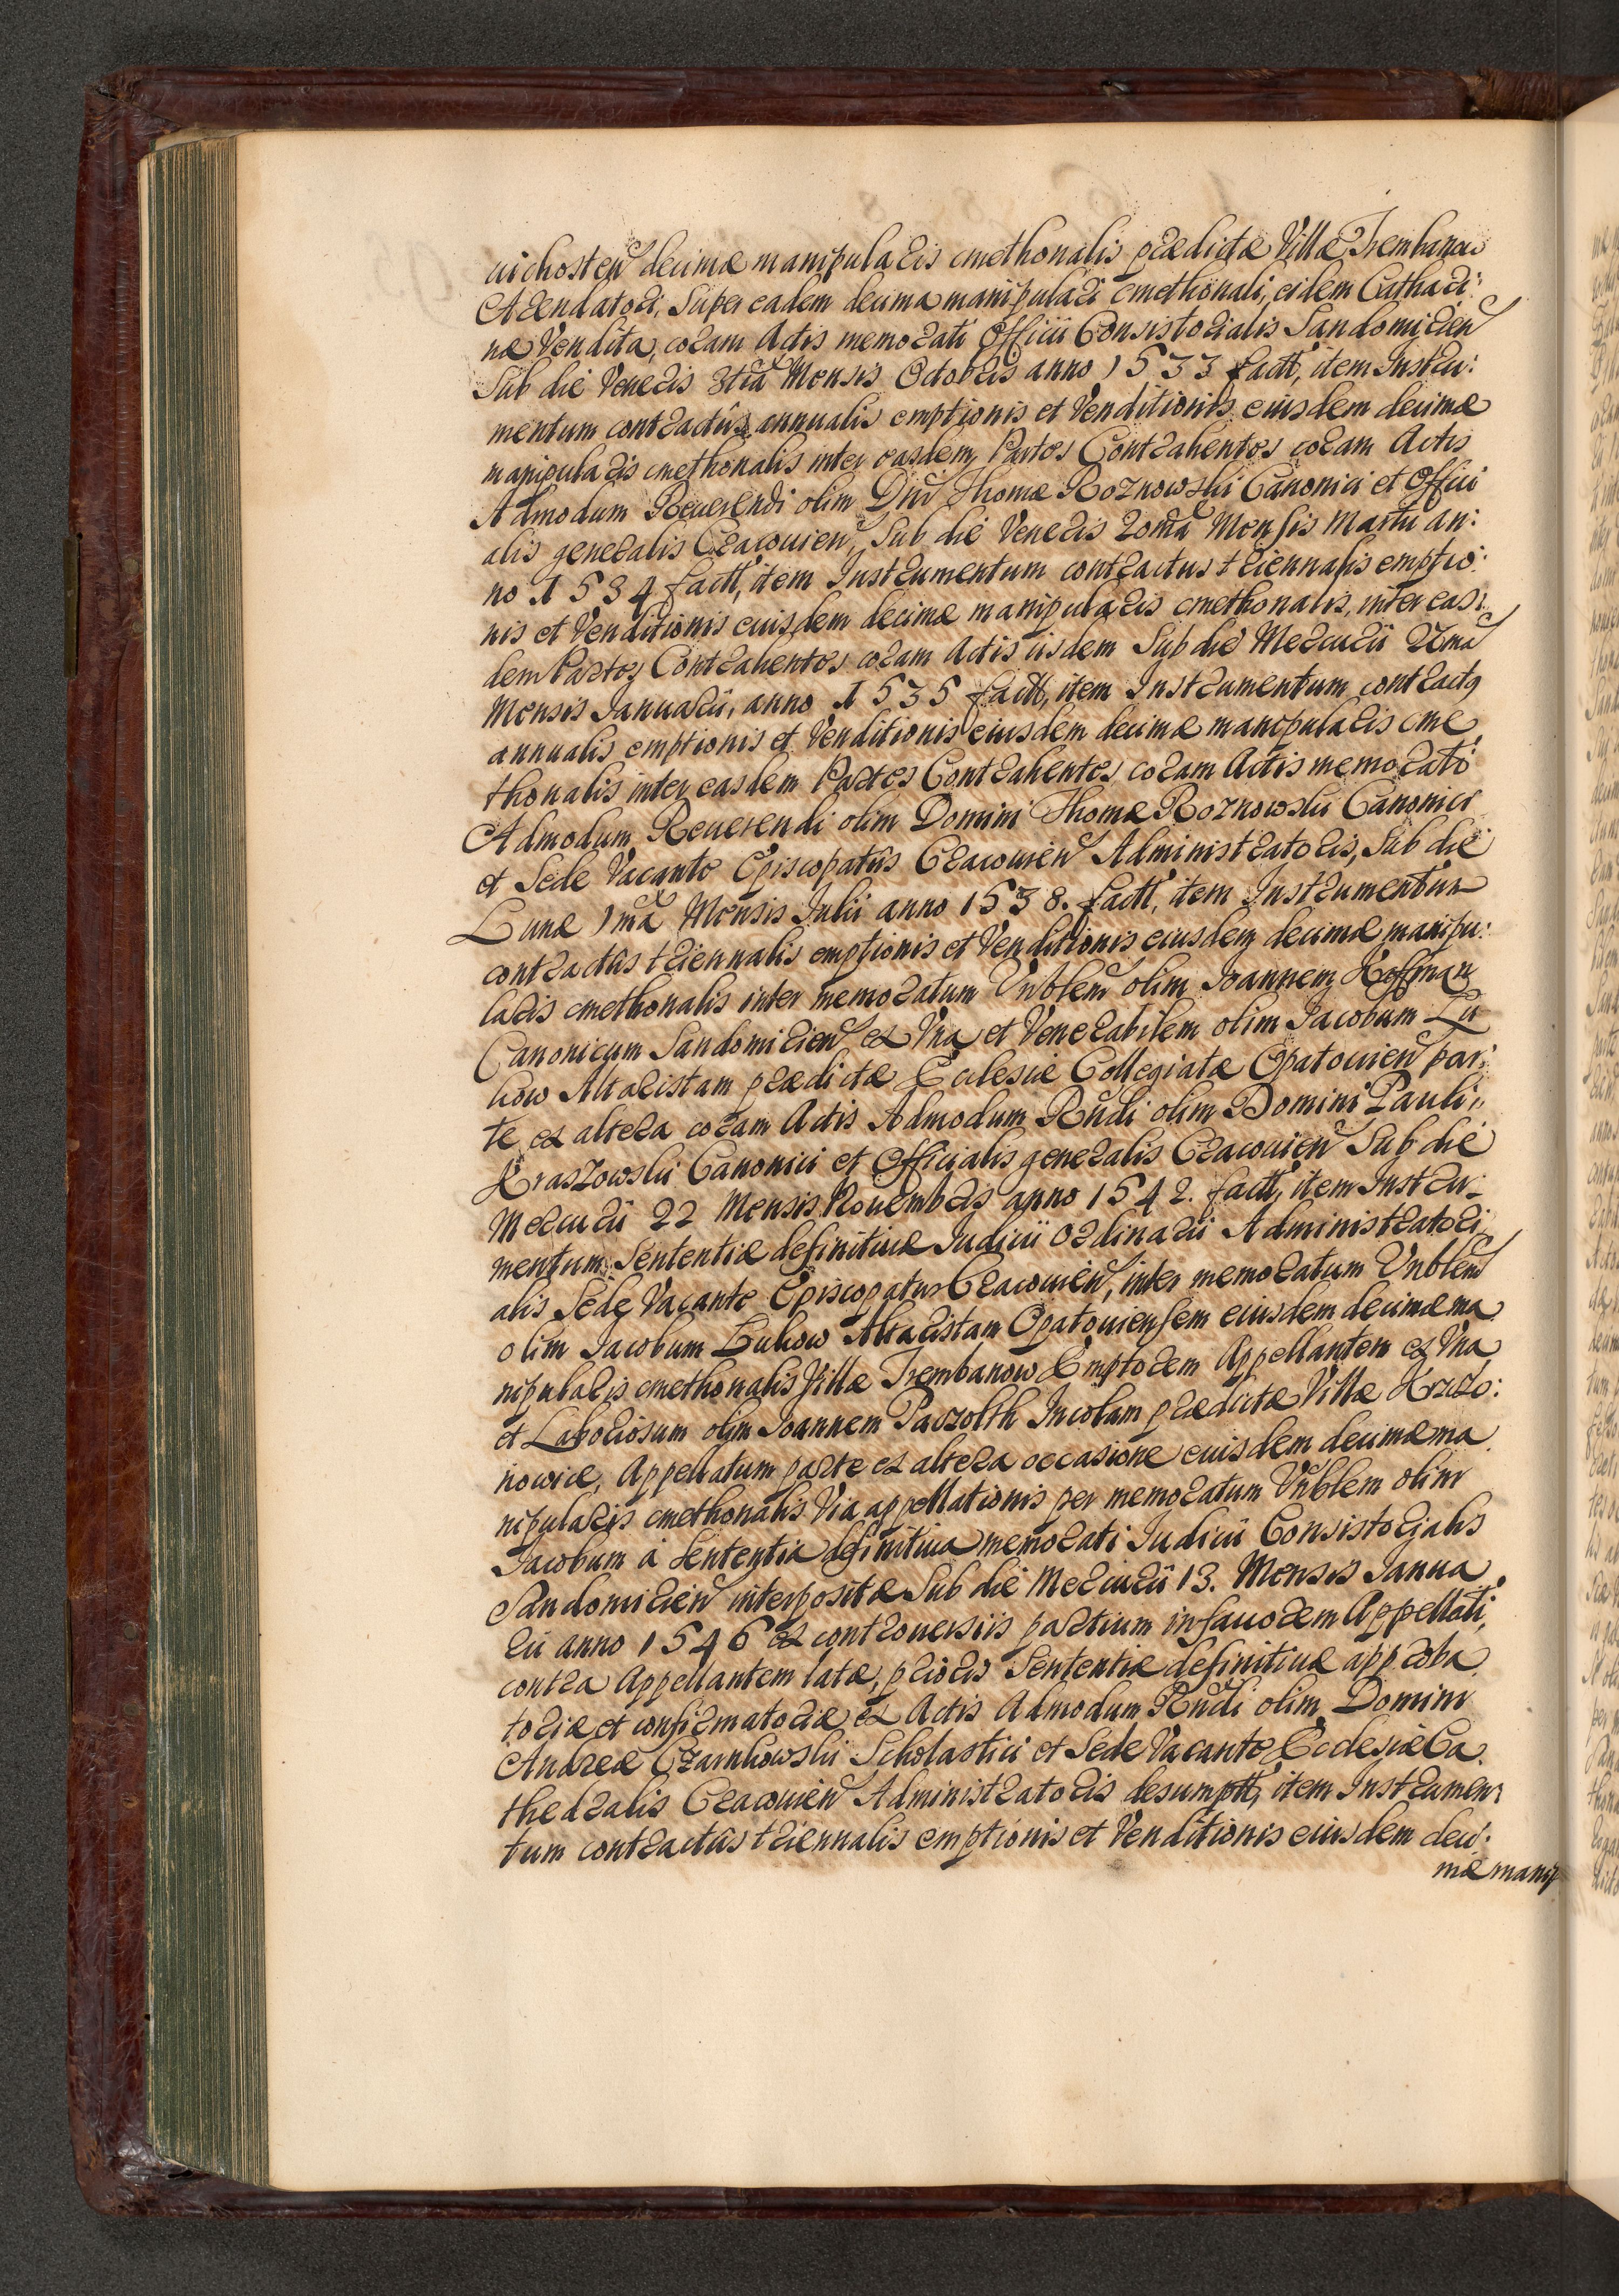 uichosten decimæ manipularis cmethonalis prædictæ Villæ Trembanow
Arendatori, Super eadem decima manipulari cmethonali, eidem Cathari:
næ Vendita, coram Actis memorati Officii Consistorialis Sandomirien
Sub die Veneris 3tia Mensis Octobris anno 1533 factt, item Instru:
mentum contractûs annualis emptionis et Venditionis eiusdem decimæ
manipularis cmethonalis inter easdem Partes Contrahentes coram Actis
Admodum Reuerendi olim Dni Thomæ Roznowski Canonici et Offici
alis generalis Cracouien, Sub die Veneris 20ma Mensis Martii an:
no 1534 factt, item Instrumentum contractus triennalis emptio:
nis et Venditionis eiusdem decimæ manipularis cmethonalis, inter eas:
dem Partes Contrahentes coram Actis iisdem Sub die Mercurii 27ma
Mensis Januarii, anno 1535 factt, item Instrumentum contractq
annualis emptionis et Venditionis eiusdem decimæ manipularis cme
thonalis inter easdem Partes Contrahentes coram Actis memorati
Admodum Reuerendi olim Domini Thomæ Roznowski Canonici
et Sede Vacante Episcopatûs Cracouien Administratoris, Sub die
Lunæ 1ma Mensis Julii anno 1538. factt, item Instrumentum
contractûs triennalis emptionis et Venditionis eiusdem decimæ manipu:
laris cmethonalis inter memoratum Vnblem olim Joannem Hoffman
Canonicum Sandomirien ex Vna et Venerabilem olim Jacobum Lu
kow Altaristam prædictæ Ecclesiæ Collegiatæ Opatouien par:
te ex altera coram Actis Admodum Rndi olim Domini Pauli
Kraszowski Canonici et Officialis generalis Cracouien Sub die
Mercurii 22 Mensis Nouembris anno 1542. factt, item Instru:
mentum Sententiæ definitiuæ Iudicii Ordinarii Administratori
alis Sede Vacante Episcopatus Cracouien, inter memoratum Vnblem
olim Jacobum Lukow Altaristam Opatouiensem eiusdem decimæ ma
nipularis cmethonalis Villæ Trembanow Emptorem Appellantem ex Vna
et Laboriosum olim Joannem Parzolth Incolam prædictæ Villæ Krzczo:
nowice, Appellatum parte ex altera occasione eiusdem decimæ ma
nipularis cmethonalis Via appellationis per memoratum Vnblem olim
Jacobum à Sententia definitiua memorati Iudicii Consistorialis
Sandomirien interpositæ Sub die Mercurii 13. Mensis Janua
rii anno 1546 ex controuersiis partium in fauorem Appellati,
contra Appellantem latæ, prioris Sententiæ definitiuæ approba
toriæ et confirmatoriæ ex Actis Admodum Rndi olim Domini
Andreæ Czarnkowski Scholastici et Sede Vacante Ecclesiæ Ca
thedralis Cracouien Administratoris desumptt, item Instrumen:
tum contractûs triennalis emptionis et Venditionis eiusdem deci:
mæ manip